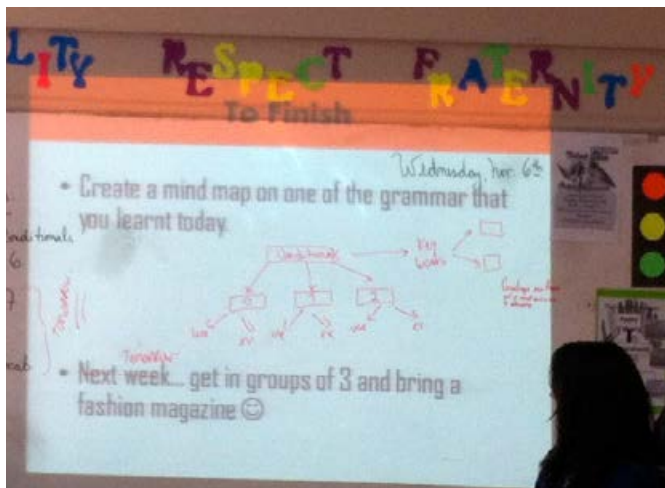 LITY RESPECT FRATERNITY
To Finish
Wednesday, Nov. 6th
• Create a mind map on one of the grammar that
you learnt today.
Conditionals
Key
words
0 1 2
use ex use ex use ex
Tomorrow
Tomorrow
• Next week... get in groups of 3 and bring a
fashion magazine ☺